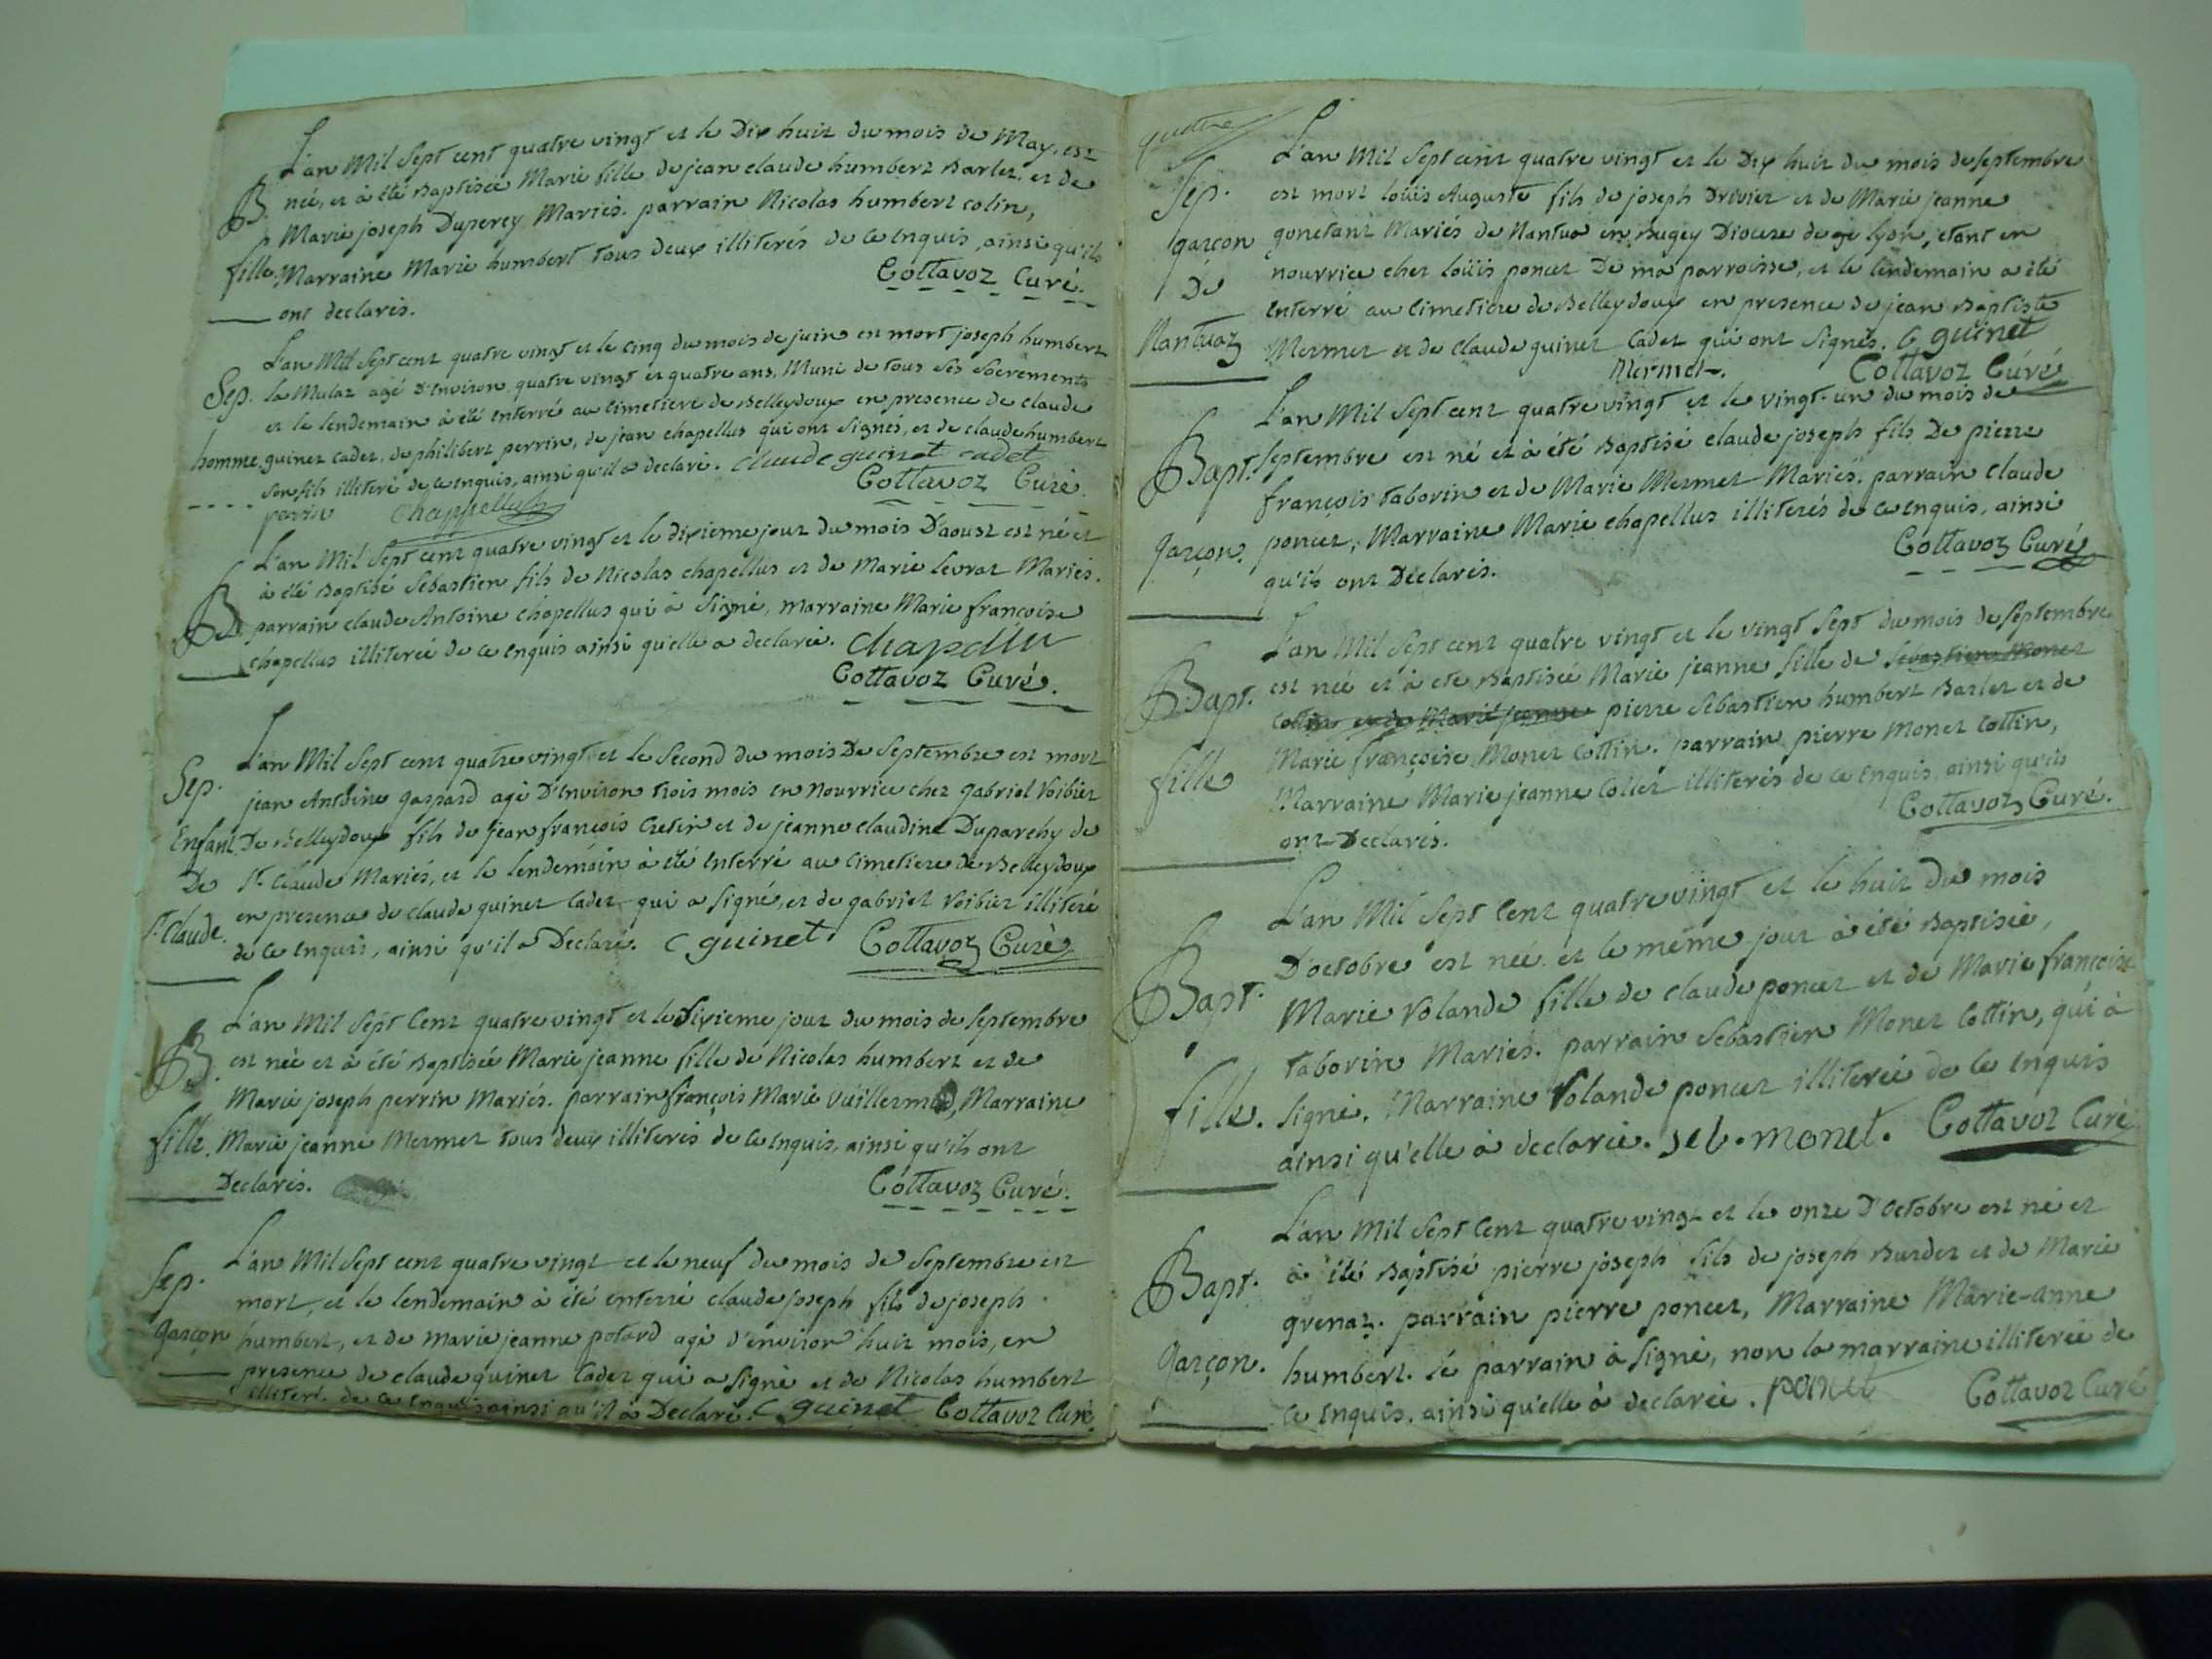 L'an Mil Sept cent quatre vingt et le Dix huit du mois de May, est
B. née, et à été Baptisée Marie fille de jean claude humbert Barlet, et de
Marie joseph Duperey Mariés. parrain Nicolas humbert colin,
fille. Marraine Marie humbert tous deux illiterés de ce enquis, ainsi qu'ils
ont declarés. Cottavoz Curé.
L'an Mil Sept cent quatre vingt et le cinq du mois de juin est mort joseph humbert
Sep. la Mulaz agé D'environ quatre vingt et quatre ans, Muni de tous Ses Sacrements
et le lendemain à été enterré au cimetiere de Belleydoux en presence de claude
homme. guinet cadet, de philibert perrin, de jean chapellus qui ont Signés, et de claude humbert
Son fils illiteré de ce enquis, ainsi qu'il a declaré. claude guinet cadet
perrin Chappellus Cottavoz Curé.
L'an Mil Sept cent quatre vingt et le dixieme jour du mois D'aoust est né et
à été Baptisé Sebastien fils de Nicolas chapellus et de Marie levrat Mariés.
B. parrain claude Antoine chapellus qui à Signé, marraine Marie françoise
chapellus illiterée de ce enquis ainsi qu'elle a declarée. Chapellu
Cottavoz Curé.
L'an Mil Sept cent quatre vingt et le Second du mois De Septembre est mort
Sep. jean Antoine gaspard agé D'environ trois mois en Nourrice chez gabriel Voibier
Enfant De Belleydoux fils de jean françois Cretin et de jeanne claudine Duparchy de
De St. Claude Mariés, et le lendemain à été Enterré au cimetiere de Belleydoux
St. Claude. en presence de claude guinet Cadet qui a signé, et de gabriel Voibier illiteré
de ce enquis, ainsi qu'il a Declaré. C guinet Cottavoz Curé
L'an Mil Sept Cent quatre vingt et le Dixieme jour du mois de Septembre
B. est née et à été Baptisée Marie jeanne fille de Nicolas humbert et de
Marie joseph perrin Mariés. parrain françois Marie Vuillermoz, Marraine
fille. Marie jeanne Mermet tous deux illiterés de ce enquis, ainsi qu'ils ont
Declarés. Cottavoz Curé.
L'an Mil Sept cent quatre vingt et le neuf du mois de Septembre est
Sep. mort, et le lendemain à été enterré claude joseph fils de joseph
garçon humbert, et de marie jeanne potard agé d'environ huit mois, en
presence de claude guinet Cadet qui a signé et de Nicolas humbert
illiteré de ce enquis ainsi qu'il à Declaré. C guinet Cottavoz Curé
L'an Mil Sept cent quatre vingt et le Dix huit du mois de Septembre
Sep. est mort loüis Auguste fils de joseph Drivier et de Marie jeanne
garçon gonetant Mariés de Nantua en Bugey Diocese de lyon, etant en
De nourrice chez loüis poncet De ma parroisse, et le lendemain a été
Enterré au cimetiere de Belleydoux en presence de jean Baptiste
Nantuaz Mermet et de claude guinet Cadet qui ont Signés. C guinet
Mermet. Cottavoz Curé
L'an Mil Sept cent quatre vingt et le vingt-un du mois de
Bapt. Septembre est né et à été Baptisé claude joseph fils De pierre
françois taborin et de Marie Mermet Mariés. parrain claude
garçon. poncet, Marraine Marie chapellus illiterés de ce enquis, ainsi
qu'ils ont Declarés. Cottavoz Curé
L'an Mil Sept cent quatre vingt et le vingt Sept du mois de Septembre
Bapt. est née et à été Baptisée Marie jeanne fille de Sebastien Monet
Cottin et de Marie jeanne pierre Sebastien humbert Barlet et de
fille Marie françoise Monet Cottin. parrain pierre Monet Cottin,
Marraine Marie jeanne Collet illiterés de ce enquis, ainsi qu'ils
ont Declarés. Cottavoz Curé.
L'an Mil Sept Cent quatre vingt et le huit du mois
D'octobre est née et le même jour à été Baptisée,
Bapt. Marie Rolande fille de claude poncet et de Marie françoise
taborin Mariés. parrain Sebastien Monet Cottin, qui à
fille. Signé. Marraine Rolande poncet illiterée de ce enquis
ainsi qu'elle à declarée. seb. monet. Cottavoz Curé
L'an Mil Sept Cent quatre vingt et le onze D'octobre est né et
Bapt. à été Baptisé pierre joseph fils de joseph Burdet et de Marie
grenat. parrain pierre poncet, Marraine Marie-anne
garçon. humbert. le parrain à Signé, non la marraine illiterée de
ce enquis, ainsi qu'elle à declarée. poncet Cottavoz Curé